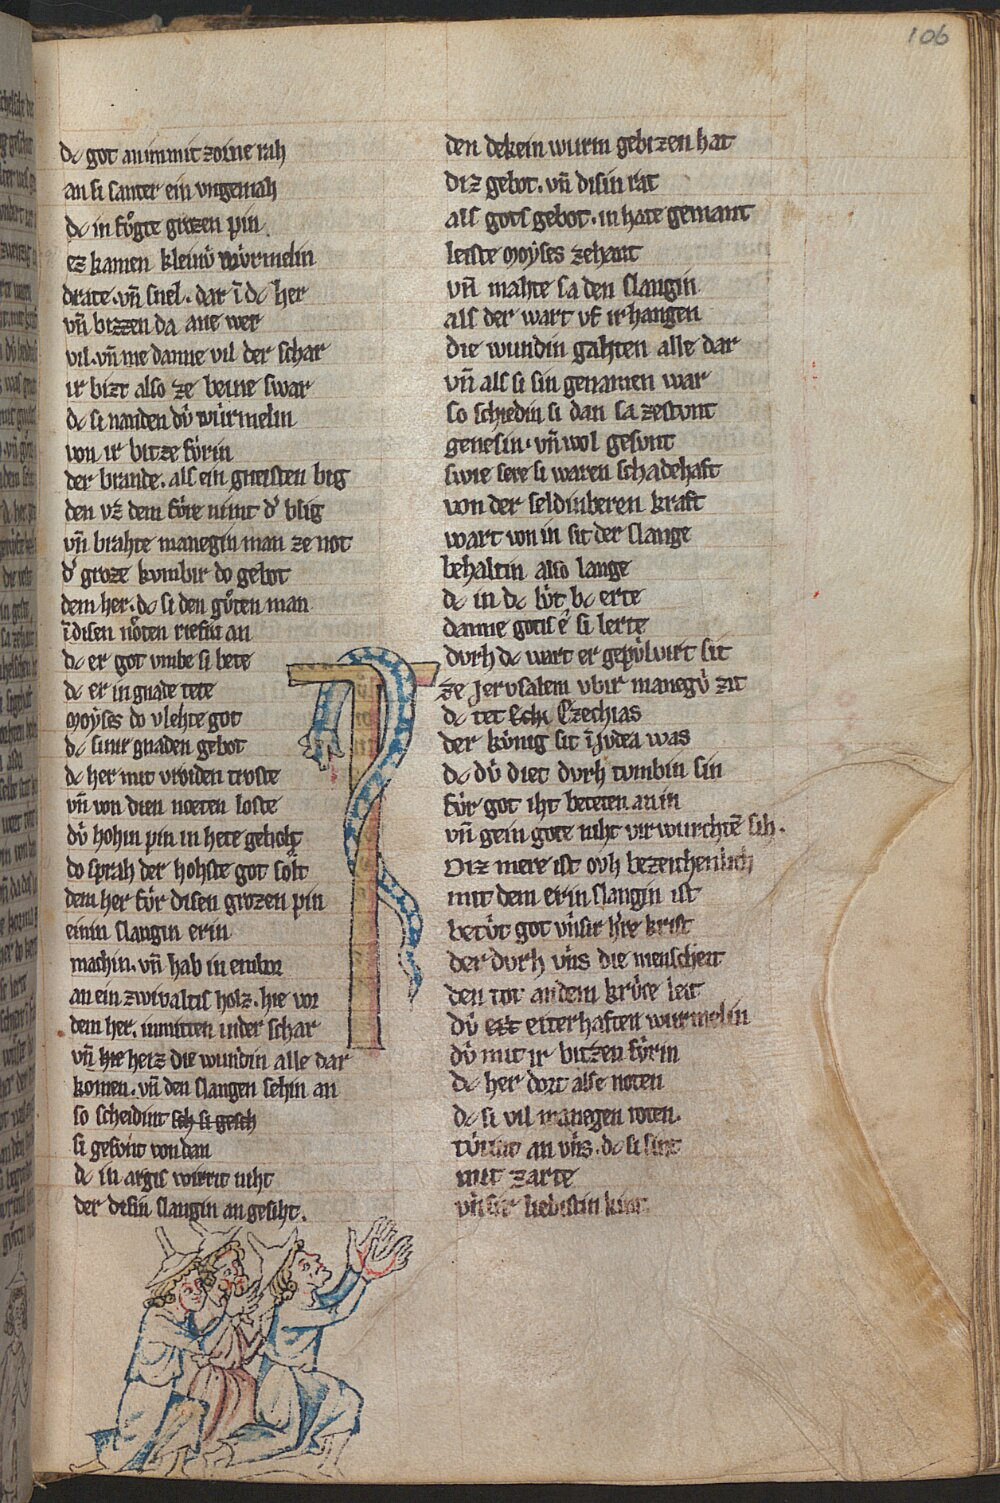 106
dc got an im mit zorne rah
an si santer ein vngemah
dc in fůgte grozen pin
ez kamen kleinv́ wúrmelin
drate. vn̄ snel. dar ī dc her
vn̄ bizzen da ane wer
vil. vn̄ me danne vil der schar
ir bizt also ze beine swar
dc si nanden dv́ wúrmelin
von ir bitze fv́rin
der brande. als ein gneisten big
den vz dem fv́re nimt d' blig
vn̄ brahte manegin man ze not
d' groze kvmbir do gebot
dem her. dc si den gůten man
ī disen nȯten riefin an
dc er got vmbe si bete
dc er in gnade tete
Moyses do vlehte got
dc sinir gnaden gebot
dc her mit vroiden troste
vn̄ von dien noeten loste
dv́ hohin pin in hete geholt
do sprah der hohste got solt
dem her fv́r disen grozen pin
einin slangin erin
machin. vn̄ hab in enbor
an ein zwivaltis holz. hie vor
dem her. inmitten inder schar
vn̄ hie heiz die wundin alle dar
komen. vn̄ den slangen sehin an
so scheidint sch si gesch
si gesv́nt von dan
dc in argis wirrit niht
der disin slangin an gesiht.
den dekein wurm gebizen hat
diz gebot. vn̄ disin rat
als gots gebot. in hate gemant
leiste Moyses zehant
vn̄ mahte sa den slangin
als der wart vf irhangen
die wundin gahten alle dar
vn̄ als si sin genamen war
so schiedin si dan sa zestvnt
genesin. vn̄ wol gesvnt
swie sere si waren schadehaft
von der seldinberen kraft
wart von in sit der slange
behaltin also lange
dc in dc lv́t bc erte
danne gotis ē si lerte
dvrh dc wart er gepvlvirt sit
ze Jervsalem vbir manegv́ zit
dc tet Echi Ezechias
der kv́nig sit ī Jvdea was
dc dv́ diet dvrh tvmbin sin
fv́r got iht beteten an in
vn̄ gein gote niht vir wurchtē sih.
Diz mere ist ovh bezeichenlich
mit dem erin slangin ist
betv́t got vn̄sir h're krist
der dvrh vn̄s die menscheit
den tot an dem krv́ce leit
dv́ eit eiterhaften wurmelin
dv́ mit ir bitzen fv́rin
dc her dort alse noten
dc si vil manegen toten.
tv́int an vn̄s. dc si sint
mit zarte
vn̄sir liebistin kint